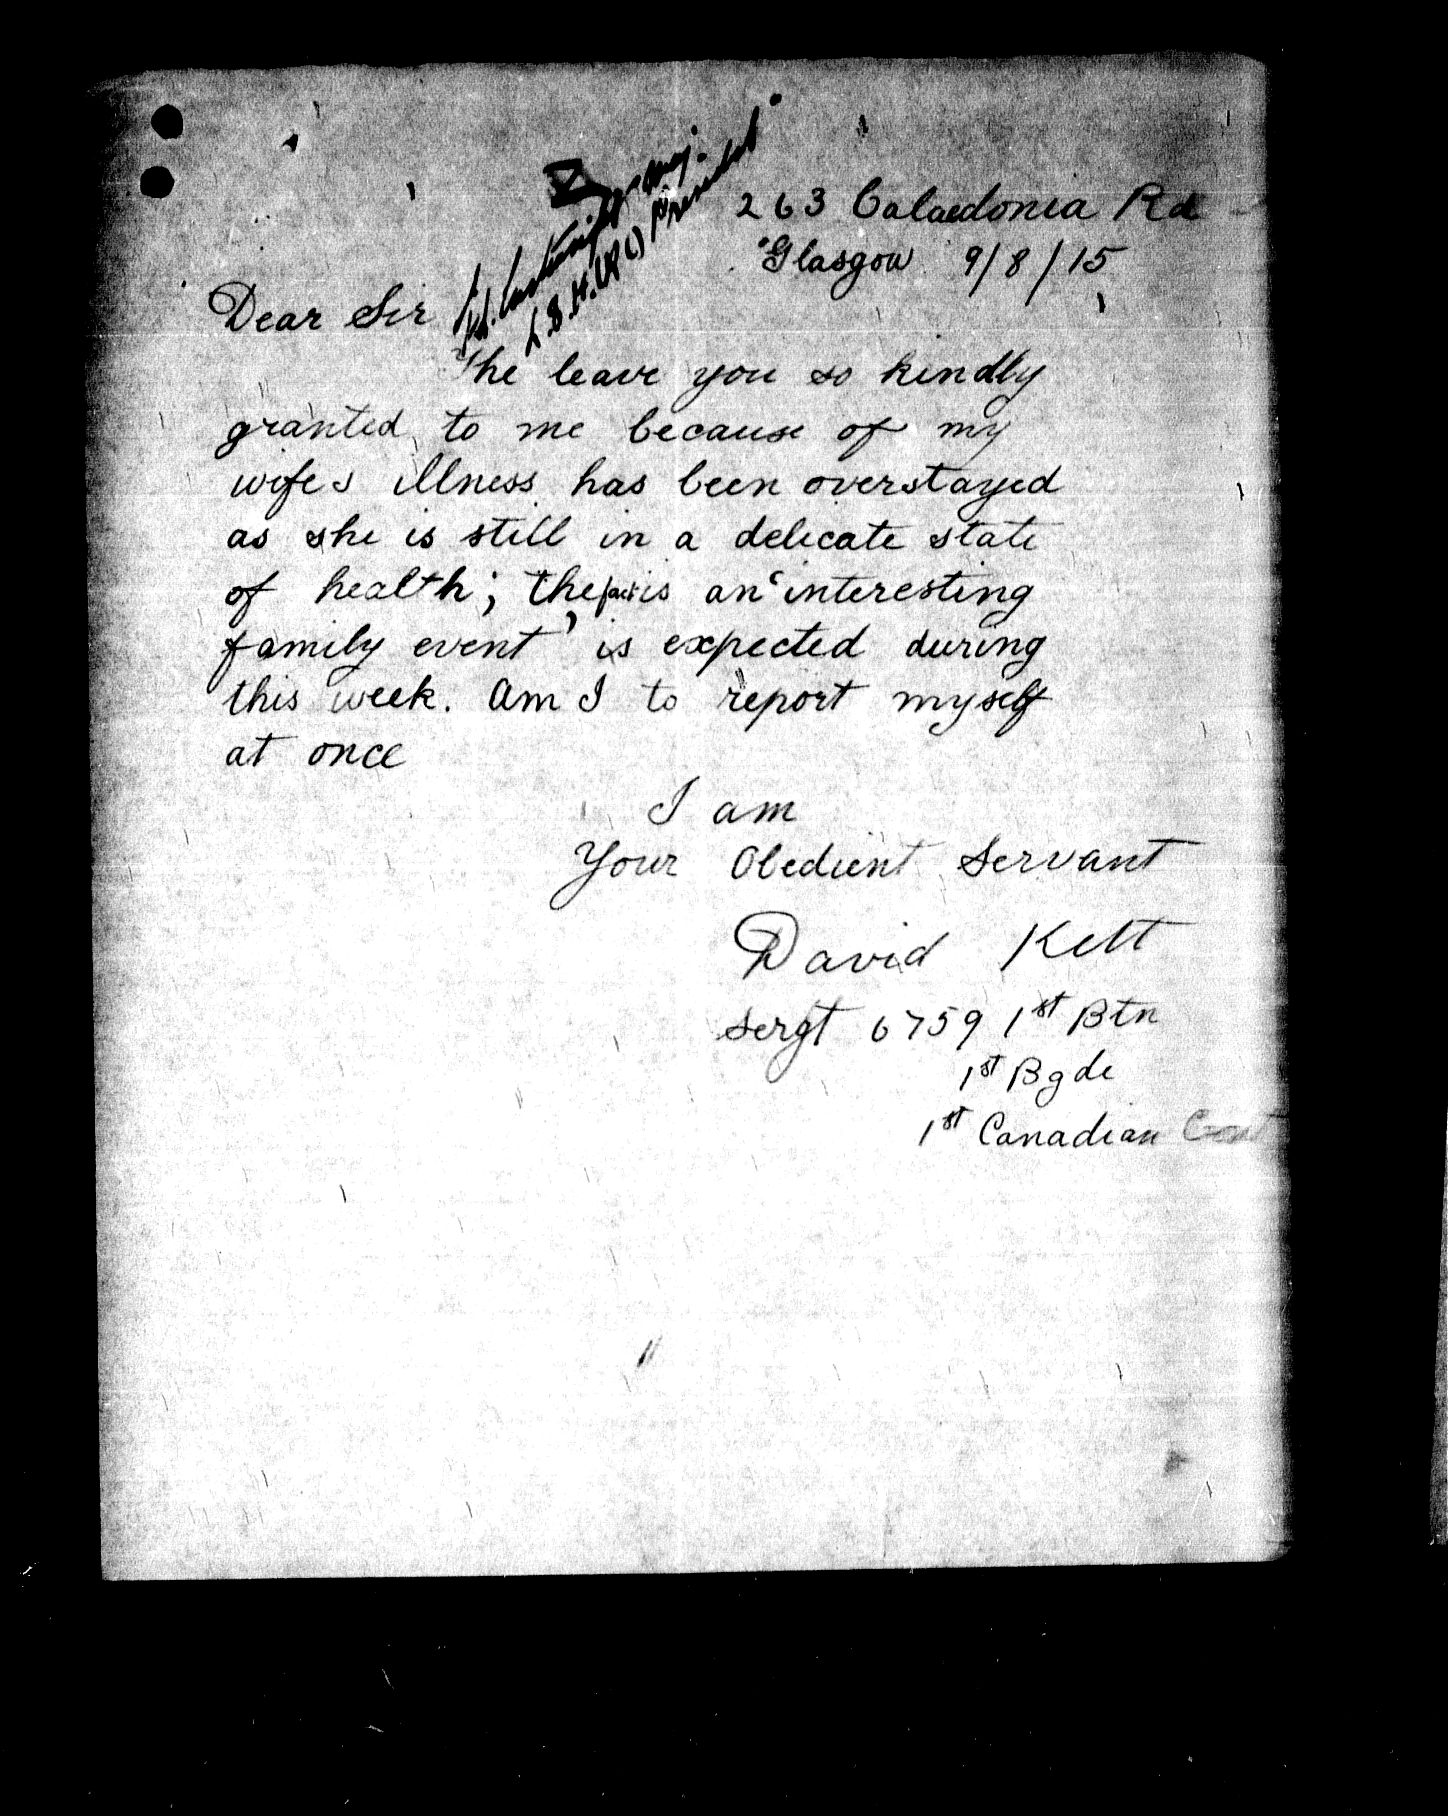 V
Maj.
L.S.H. (RC) President
263 Calaedonia Rd
Glasgow 9/8/15
Dear Sir
The leave you so kindly
granted to me because of my
wifes illness has been overstayed
as she is still in a delicate state
of health; the fact is an 'interesting
family event' is expected during
this week. Am I to report myself
at once
I am
Your Obedient Servant
David Kett
Sergt 6759 1st Btn
1st Bgde
1st Canadian Cont